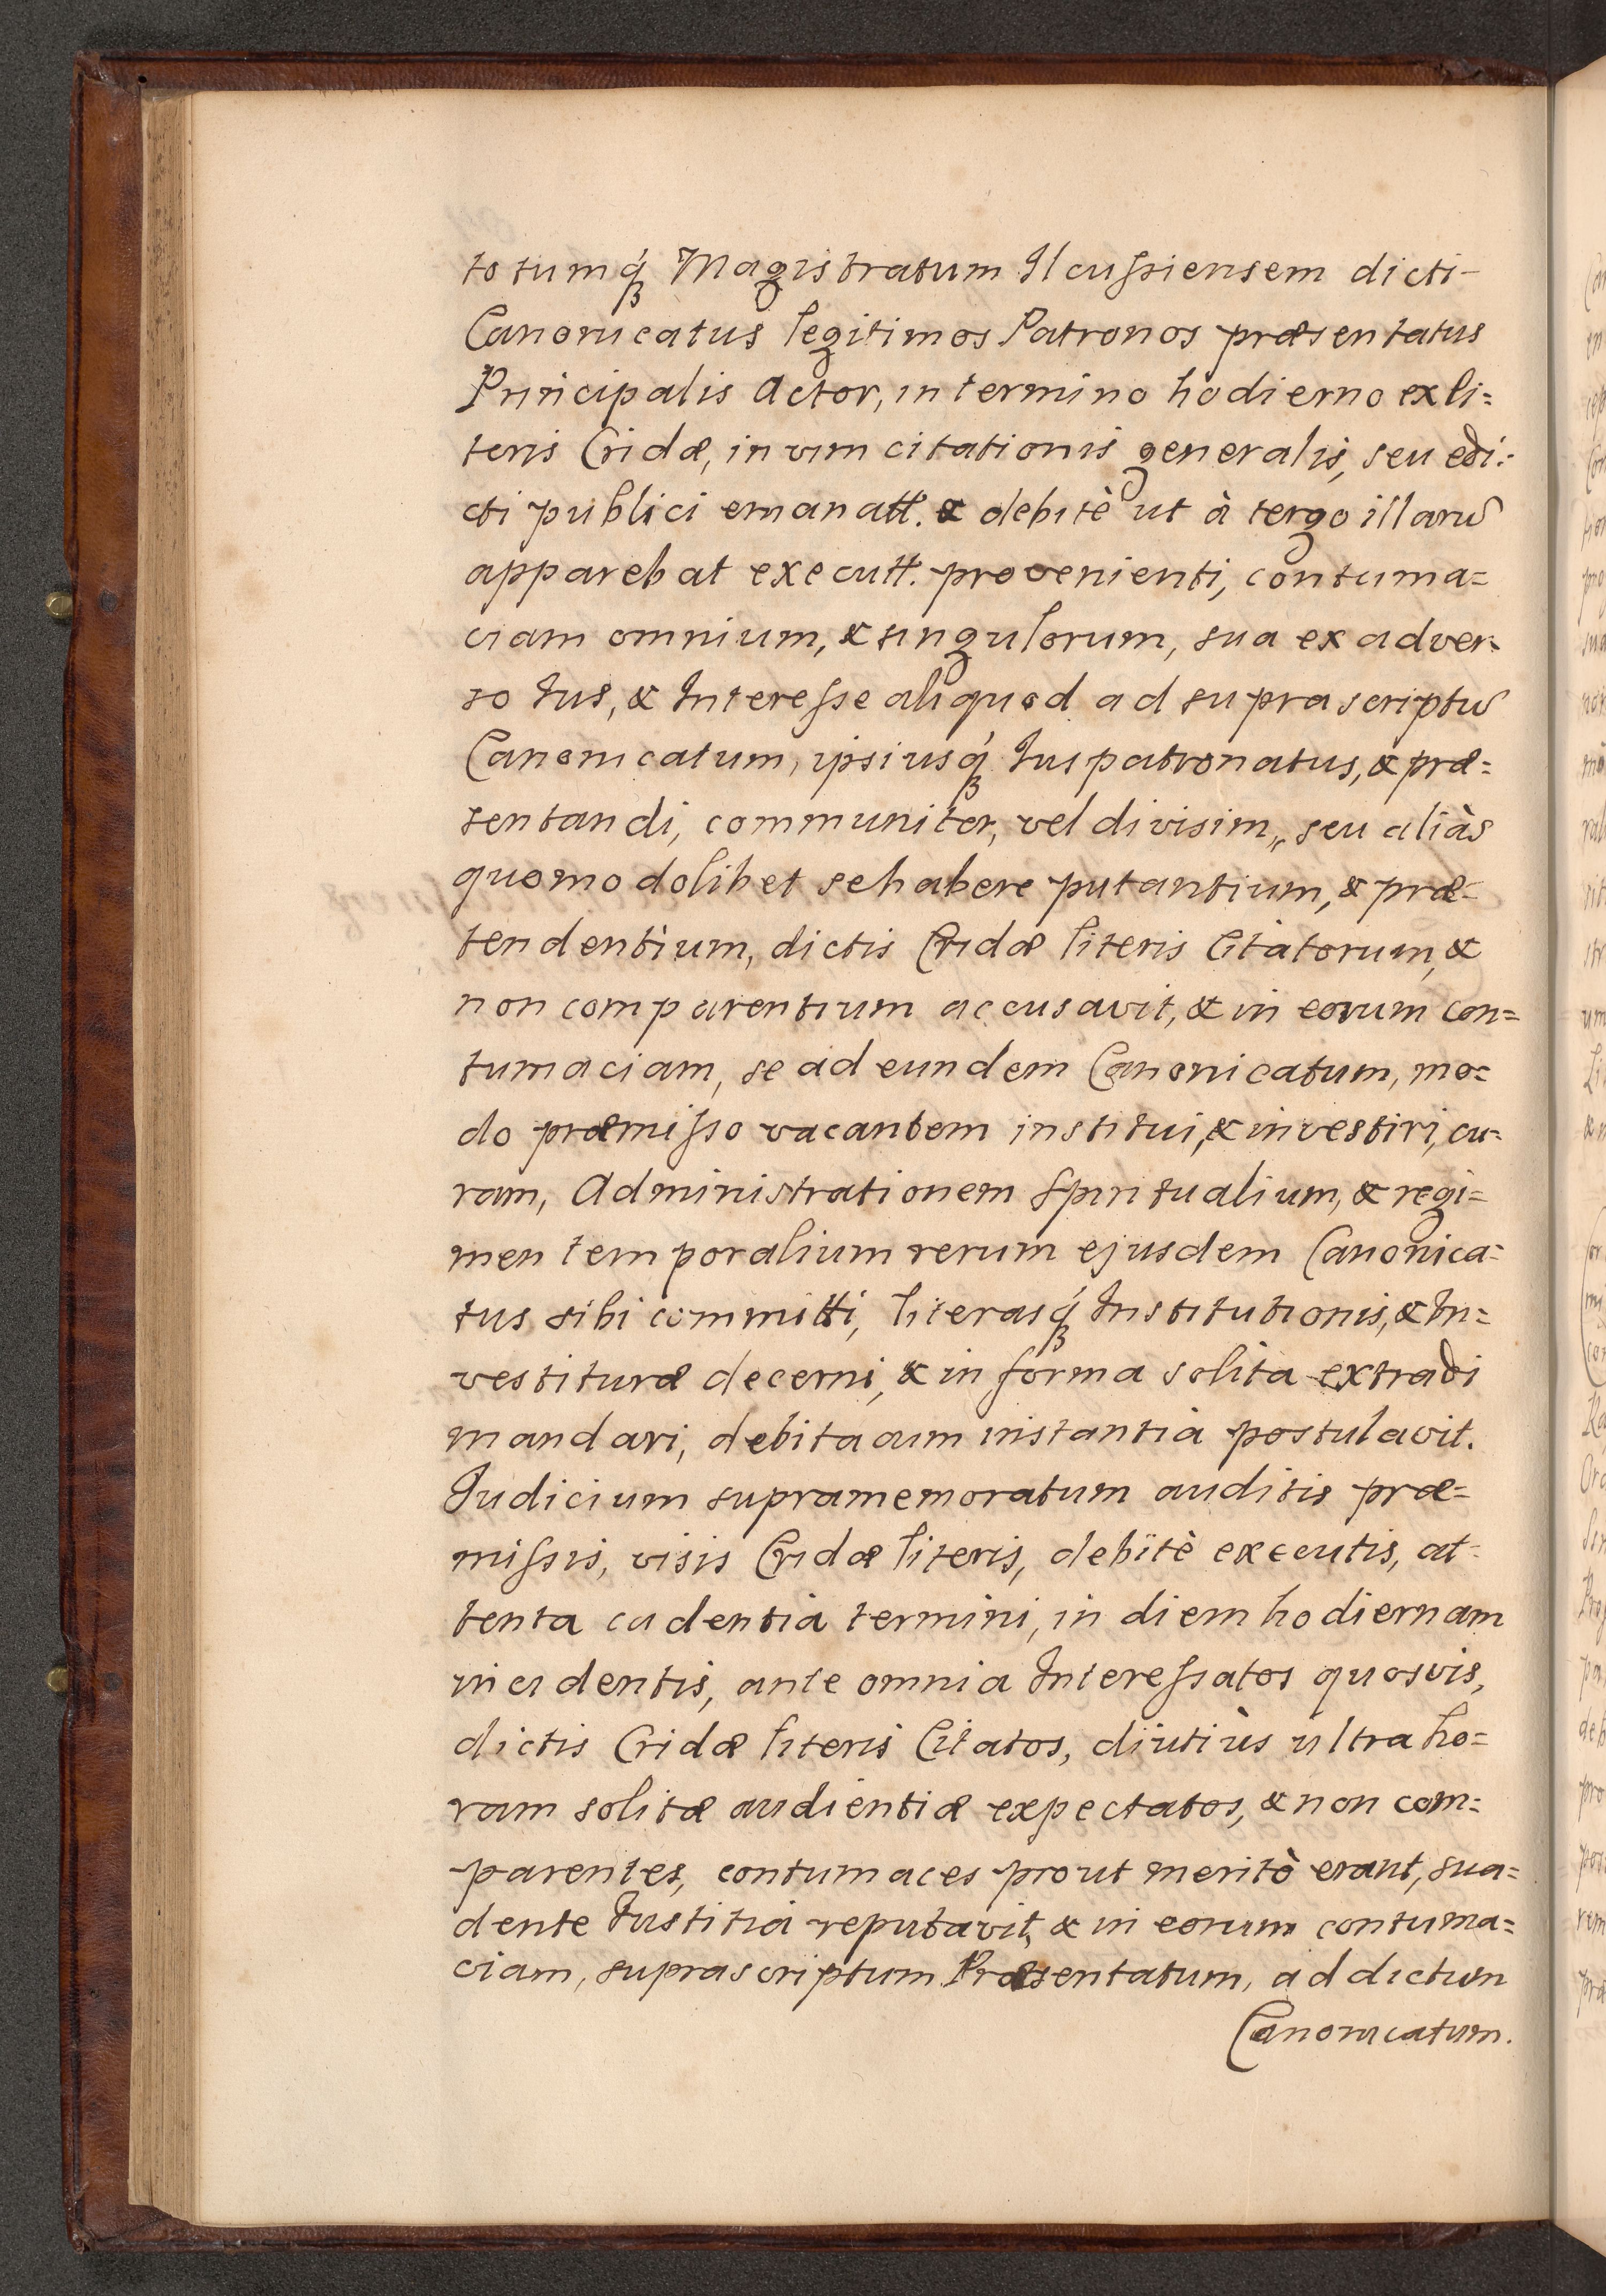 totumq́ꝫ Magistratum Ilcuſsiensem dicti-
Canonicatus legitimos Patronos præsentatus
Principalis Actor, in termino hodierno ex li=
teris Cridæ, in vim citationis generalis, seu edi=
cti publici emanatt. & debitè ut à tergo illarū
apparebat executt. provenienti, contuma=
ciam omnium, & singulorum, sua ex adver=
so Jus, & Intereſse aliquod ad suprascriptū
Canonicatum, ipsiusq́ꝫ Juspatronatus, & præ=
sentandi, communiter, vel divisim, seu aliàs
quomodolibet se habere putantium, & præ=
tendentium, dictis Cridæ literis Citatorum, &
non comparentium accusavit, & in eorum con=
tumaciam, se ad eundem Canonicatum, mo=
do præmiſso vacantem institui, & investiri, cu=
ram, Administrationem Spiritualium, & regi=
men temporalium rerum ejusdem Canonica=
tus sibi committi, literasq́ꝫ Institutionis, & In=
vestituræ decerni, & in forma solita extradi
mandari, debita cum instantia postulavit.
Judicium supramemoratum auditis præ=
miſsis, visis Cridæ literis, debitè executis, at=
tenta cadentia termini, in diem hodiernam
incidentis, ante omnia Intereſsatos quosvis,
dictis Cridæ literis Citatos, diutiùs ultra ho=
ram solitæ audientiæ expectatos, & non com=
parentes, contumaces prout meritò erant, sua=
dente Justitia reputavit, & in eorum contuma=
ciam, suprascriptum Præsentatum, ad dictum
Canonicatum.